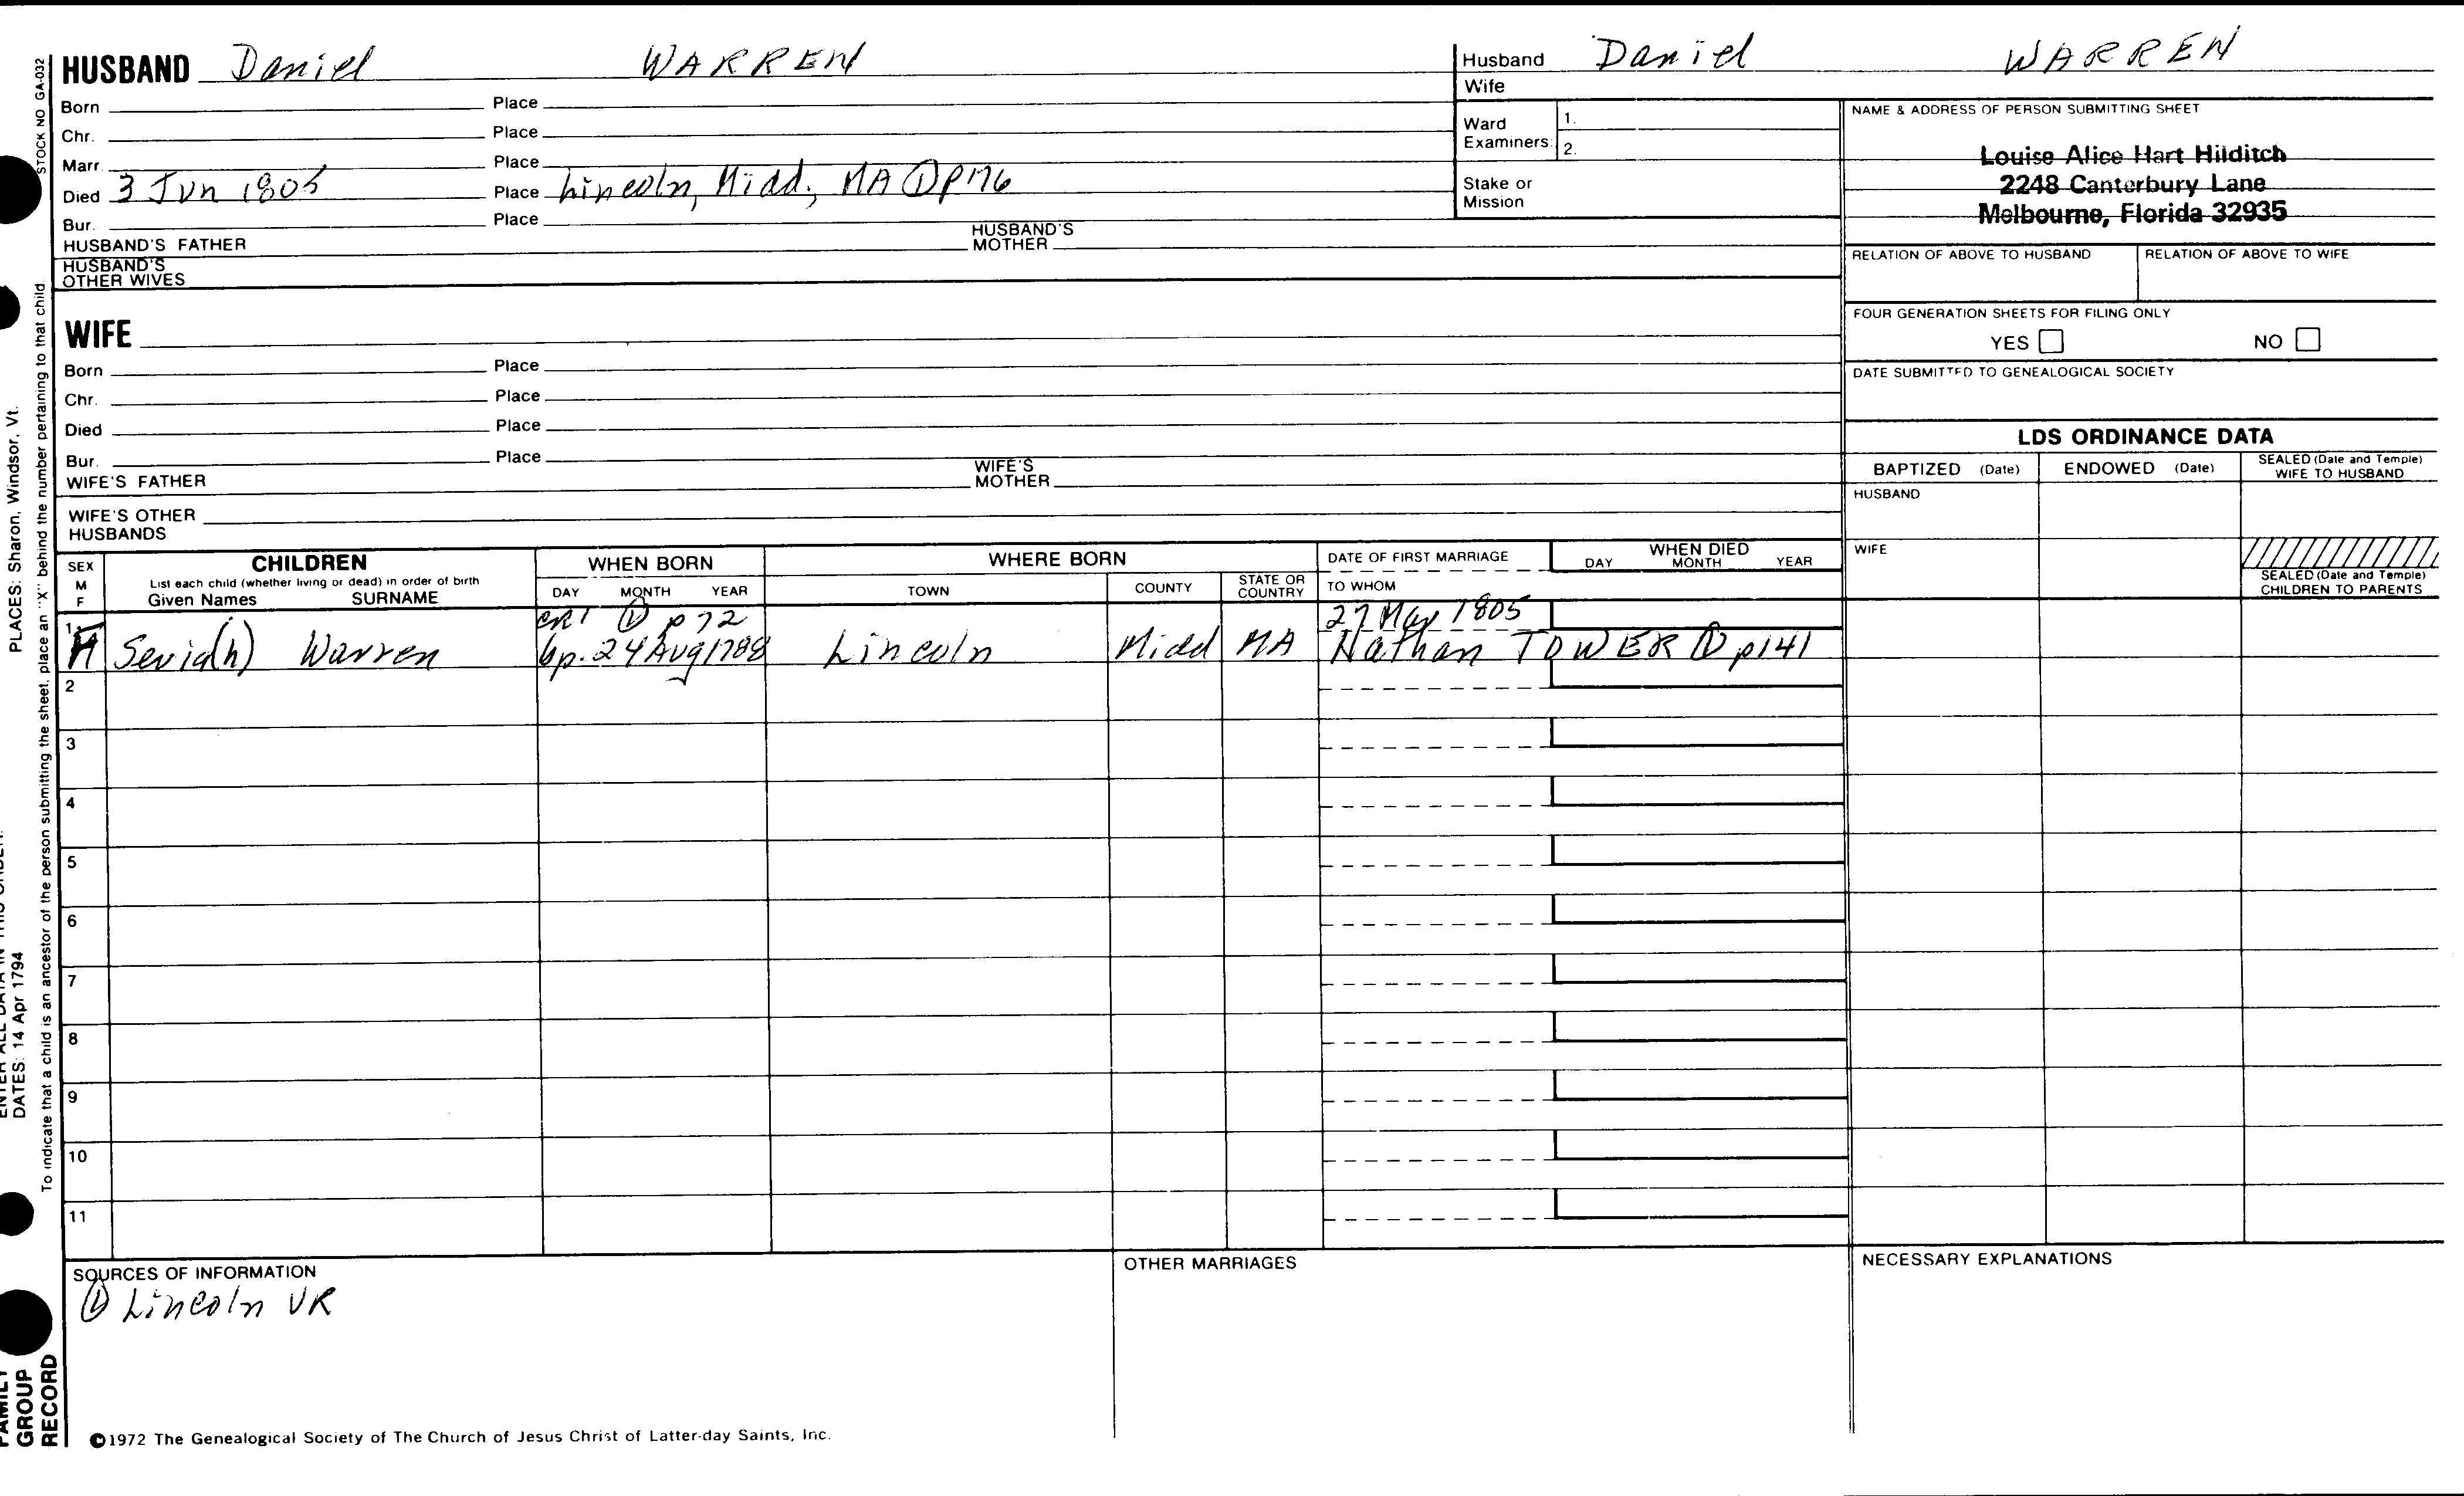 HUSBAND Daniel WARREN
Born Place
Chr. Place
Marr. Place
Died 3 Jun 1805 Place Lincoln, Midd., MA ① p176
Bur. Place
HUSBAND'S FATHER HUSBAND'S MOTHER
HUSBAND'S OTHER WIVES
WIFE
Born Place
Chr. Place
Died Place
Bur. Place
WIFE'S FATHER WIFE'S MOTHER
WIFE'S OTHER HUSBANDS
Husband Daniel WARREN
Wife
Ward Examiners: 1.
2.
Stake or Mission
NAME & ADDRESS OF PERSON SUBMITTING SHEET
Louise Alice Hart Hilditch
2248 Canterbury Lane
Melbourne, Florida 32935
RELATION OF ABOVE TO HUSBAND RELATION OF ABOVE TO WIFE
FOUR GENERATION SHEETS FOR FILING ONLY
YES NO
DATE SUBMITTED TO GENEALOGICAL SOCIETY
LDS ORDINANCE DATA
BAPTIZED (Date) ENDOWED (Date) SEALED (Date and Temple) WIFE TO HUSBAND
HUSBAND
WIFE
SEALED (Date and Temple) CHILDREN TO PARENTS
SEX M F
CHILDREN
List each child (whether living or dead) in order of birth
Given Names SURNAME
WHEN BORN
DAY MONTH YEAR
WHERE BORN
TOWN COUNTY STATE OR COUNTRY
DATE OF FIRST MARRIAGE
TO WHOM
WHEN DIED
DAY MONTH YEAR
CR1 ① p72 27 May 1805
1 F Seria(h) Warren bp. 24 Aug 1788 Lincoln Midd MA Nathan TOWER ① p141
2
3
4
5
6
7
8
9
10
11
SOURCES OF INFORMATION
① Lincoln VR
OTHER MARRIAGES
NECESSARY EXPLANATIONS
©1972 The Genealogical Society of The Church of Jesus Christ of Latter-day Saints, Inc.
STOCK NO GA-032
To indicate that a child is an ancestor of the person submitting the sheet, place an "X" behind the number pertaining to that child.
PLACES: Sharon, Windsor, Vt.
DATES: 14 Apr 1794
FAMILY GROUP RECORD